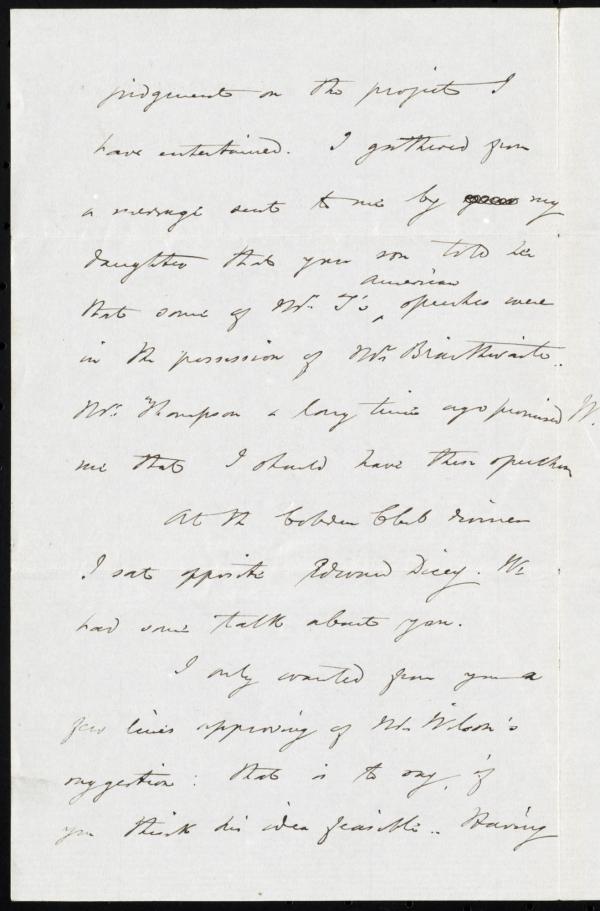 judgment on the project I
have entertained. I gathered from
a message sent to me by my
daughter that your son told her
that some of Mr. T's American speeches were
in the possession of Mrs Braithwaite.
Mr. Thompson a long time ago promised
me that I should have these speeches
At the Cobden Club dinner
I sat opposite Edward Dicey. We
had some talk about you.
I only wanted from you a
few lines approving of Mr. Wilson's
suggestion: that is to say, if
you think his idea feasible.. Having
W.